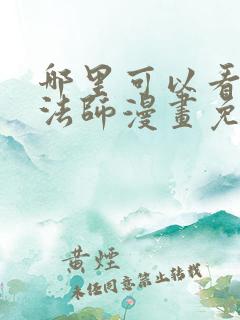 哪里可以看
法师漫畫免
黄煙
未经同意禁止转载